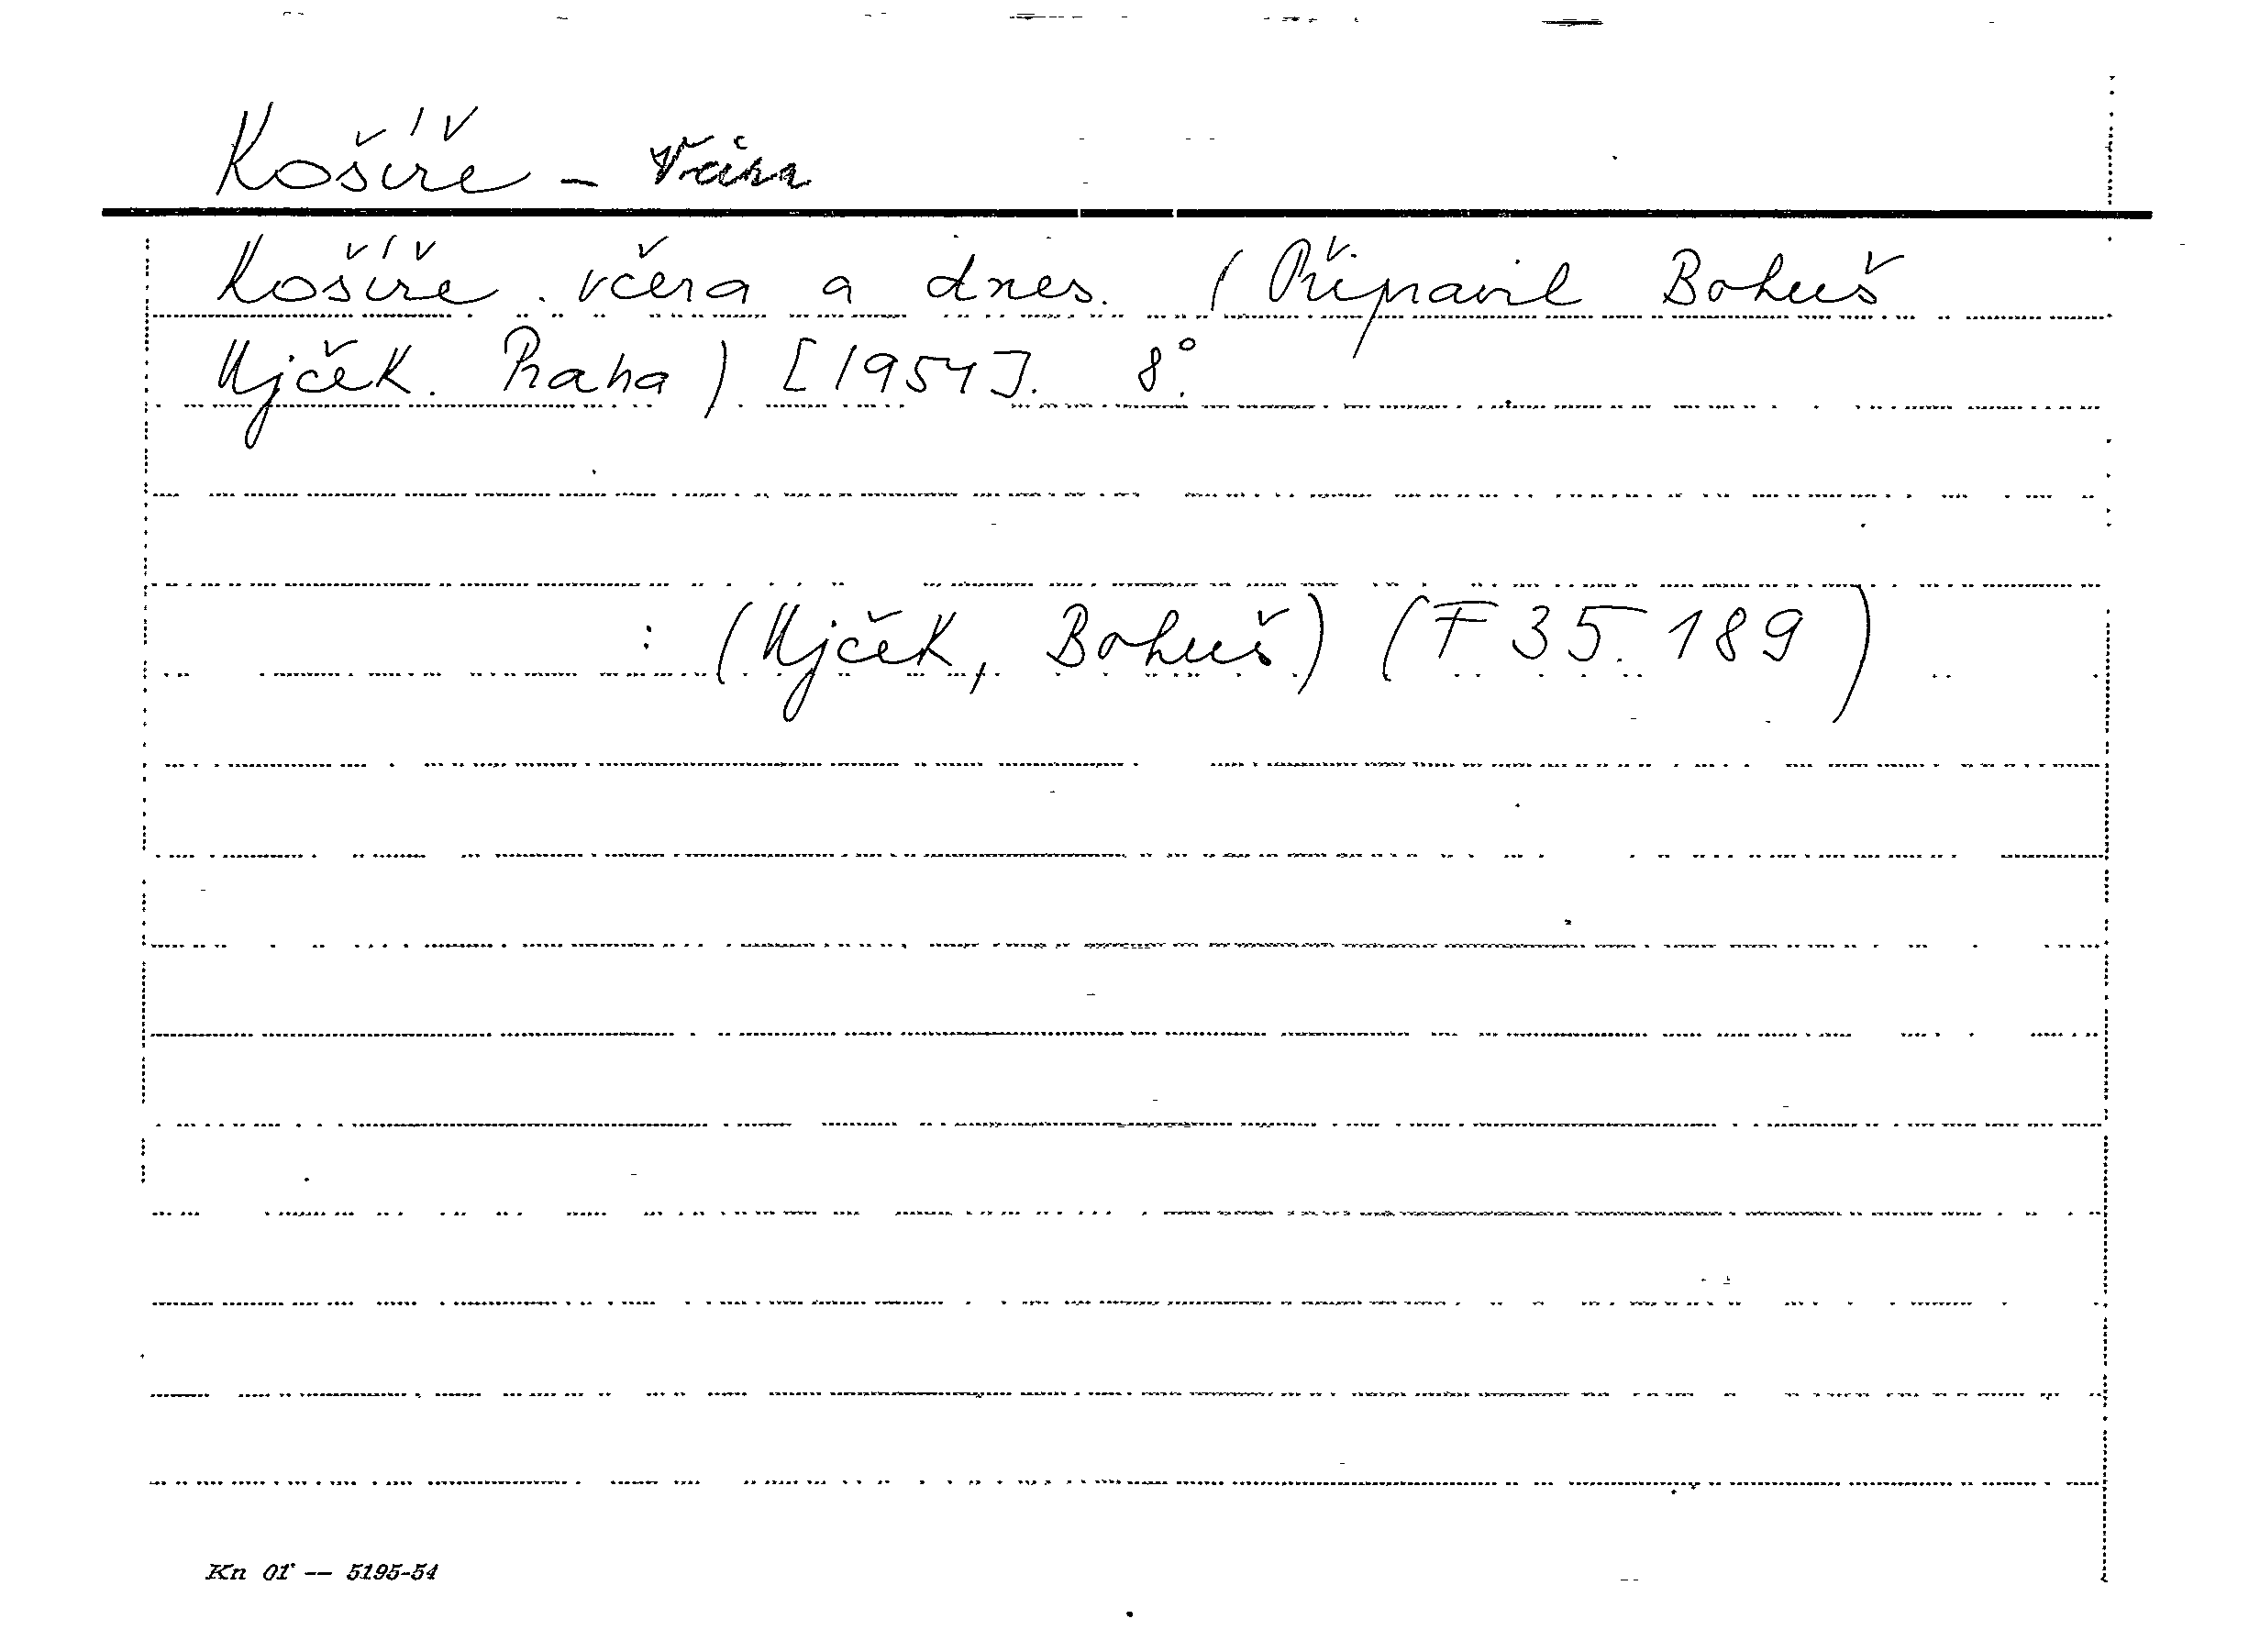 Košíře –
Košíře včera a dnes. (Připravil Bohuš
Ujček. Praha) [1954]. 8°.
: (Ujček, Bohuš) (F 35.189)
Kn 01 — 5195-54